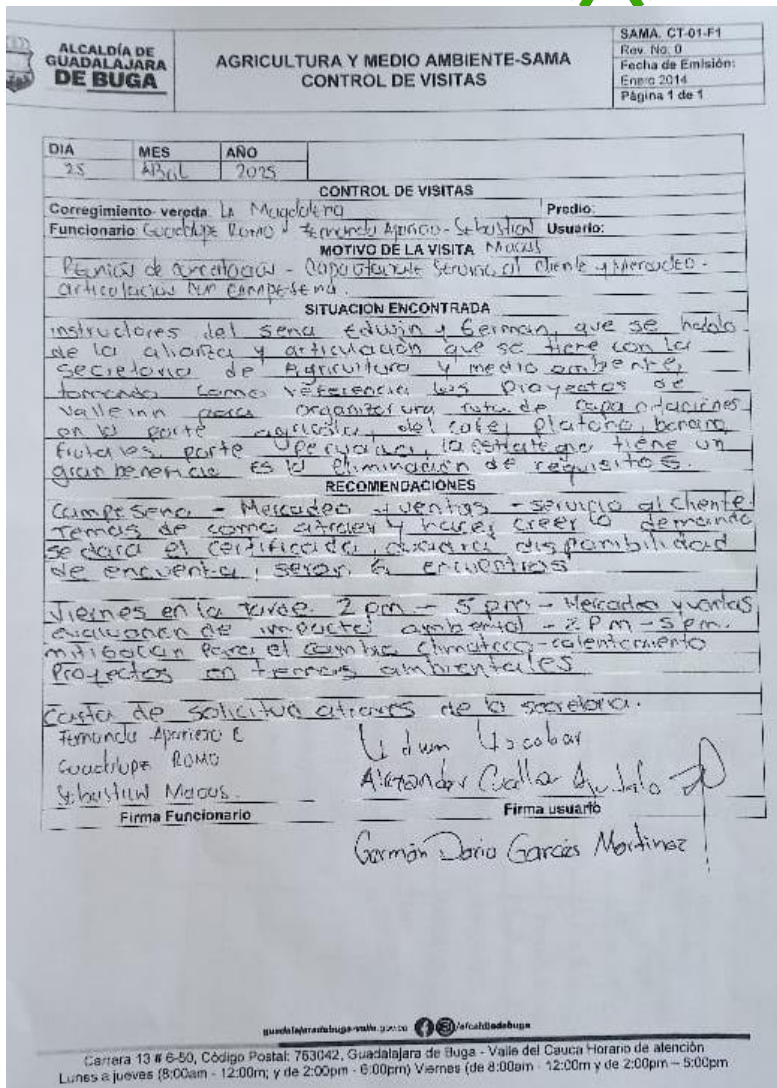 ALCALDÍA DE
GUADALAJARA
DE BUGA
AGRICULTURA Y MEDIO AMBIENTE-SAMA
CONTROL DE VISITAS
SAMA. CT-01-F1
Rev. No. 0
Fecha de Emisión:
Enero 2014
Página 1 de 1
DIA MES AÑO
25 Abril 2025
CONTROL DE VISITAS
Corregimiento- vereda: La Magdalena Predio:
Funcionario: Guadalupe Romo y Fernanda Aparicio - Sebastian Usuario:
MOTIVO DE LA VISITA Macas
Reunion de - Servicio al cliente y Mercadeo -
articulacion con campesena.
SITUACION ENCONTRADA
instructores del sena Edwin y German, que se hablo
de la alianza y articulación que se tiene con la
secretaria de Agricultura y medio ambiente,
tomando como referencia los proyectos de
Valle inn para organizar una ruta de capacitaciones
en la parte agricola, del cafe, platano, banano,
frutales, parte pecuaria, la estrategia tiene un
gran beneficio es la eliminación de requisitos.
RECOMENDACIONES
Campesena - Mercadeo y ventas - servicio al cliente
Temas de como atraer y hacer creer la demanda
se dara el certificado, disponibilidad
de encuentra, seran 6 encuentros
Viernes en la tarde. 2 pm - 5 pm - Mercadeo y ventas
evaluacion de impacto ambiental - 2 PM - 5 pm.
mitigacion para el cambio climatico - calentamiento
Proyectos en temas ambientales
Carta de solicitud atraves de la secretaria.
Fernanda Aparicio E
Guadalupe Romo
Sebastian Macas.
Edwin Escobar
Alexander Cuellar
Firma Funcionario Firma usuario
Germán Dario Garcés Martinez
guadalajaradebuga-valle.gov.co /alcaldiadebuga
Carrera 13 # 6-50, Código Postal: 763042, Guadalajara de Buga - Valle del Cauca Horario de atención
Lunes a jueves (8:00am - 12:00m; y de 2:00pm - 6:00pm) Viernes (de 8:00am - 12:00m y de 2:00pm – 5:00pm